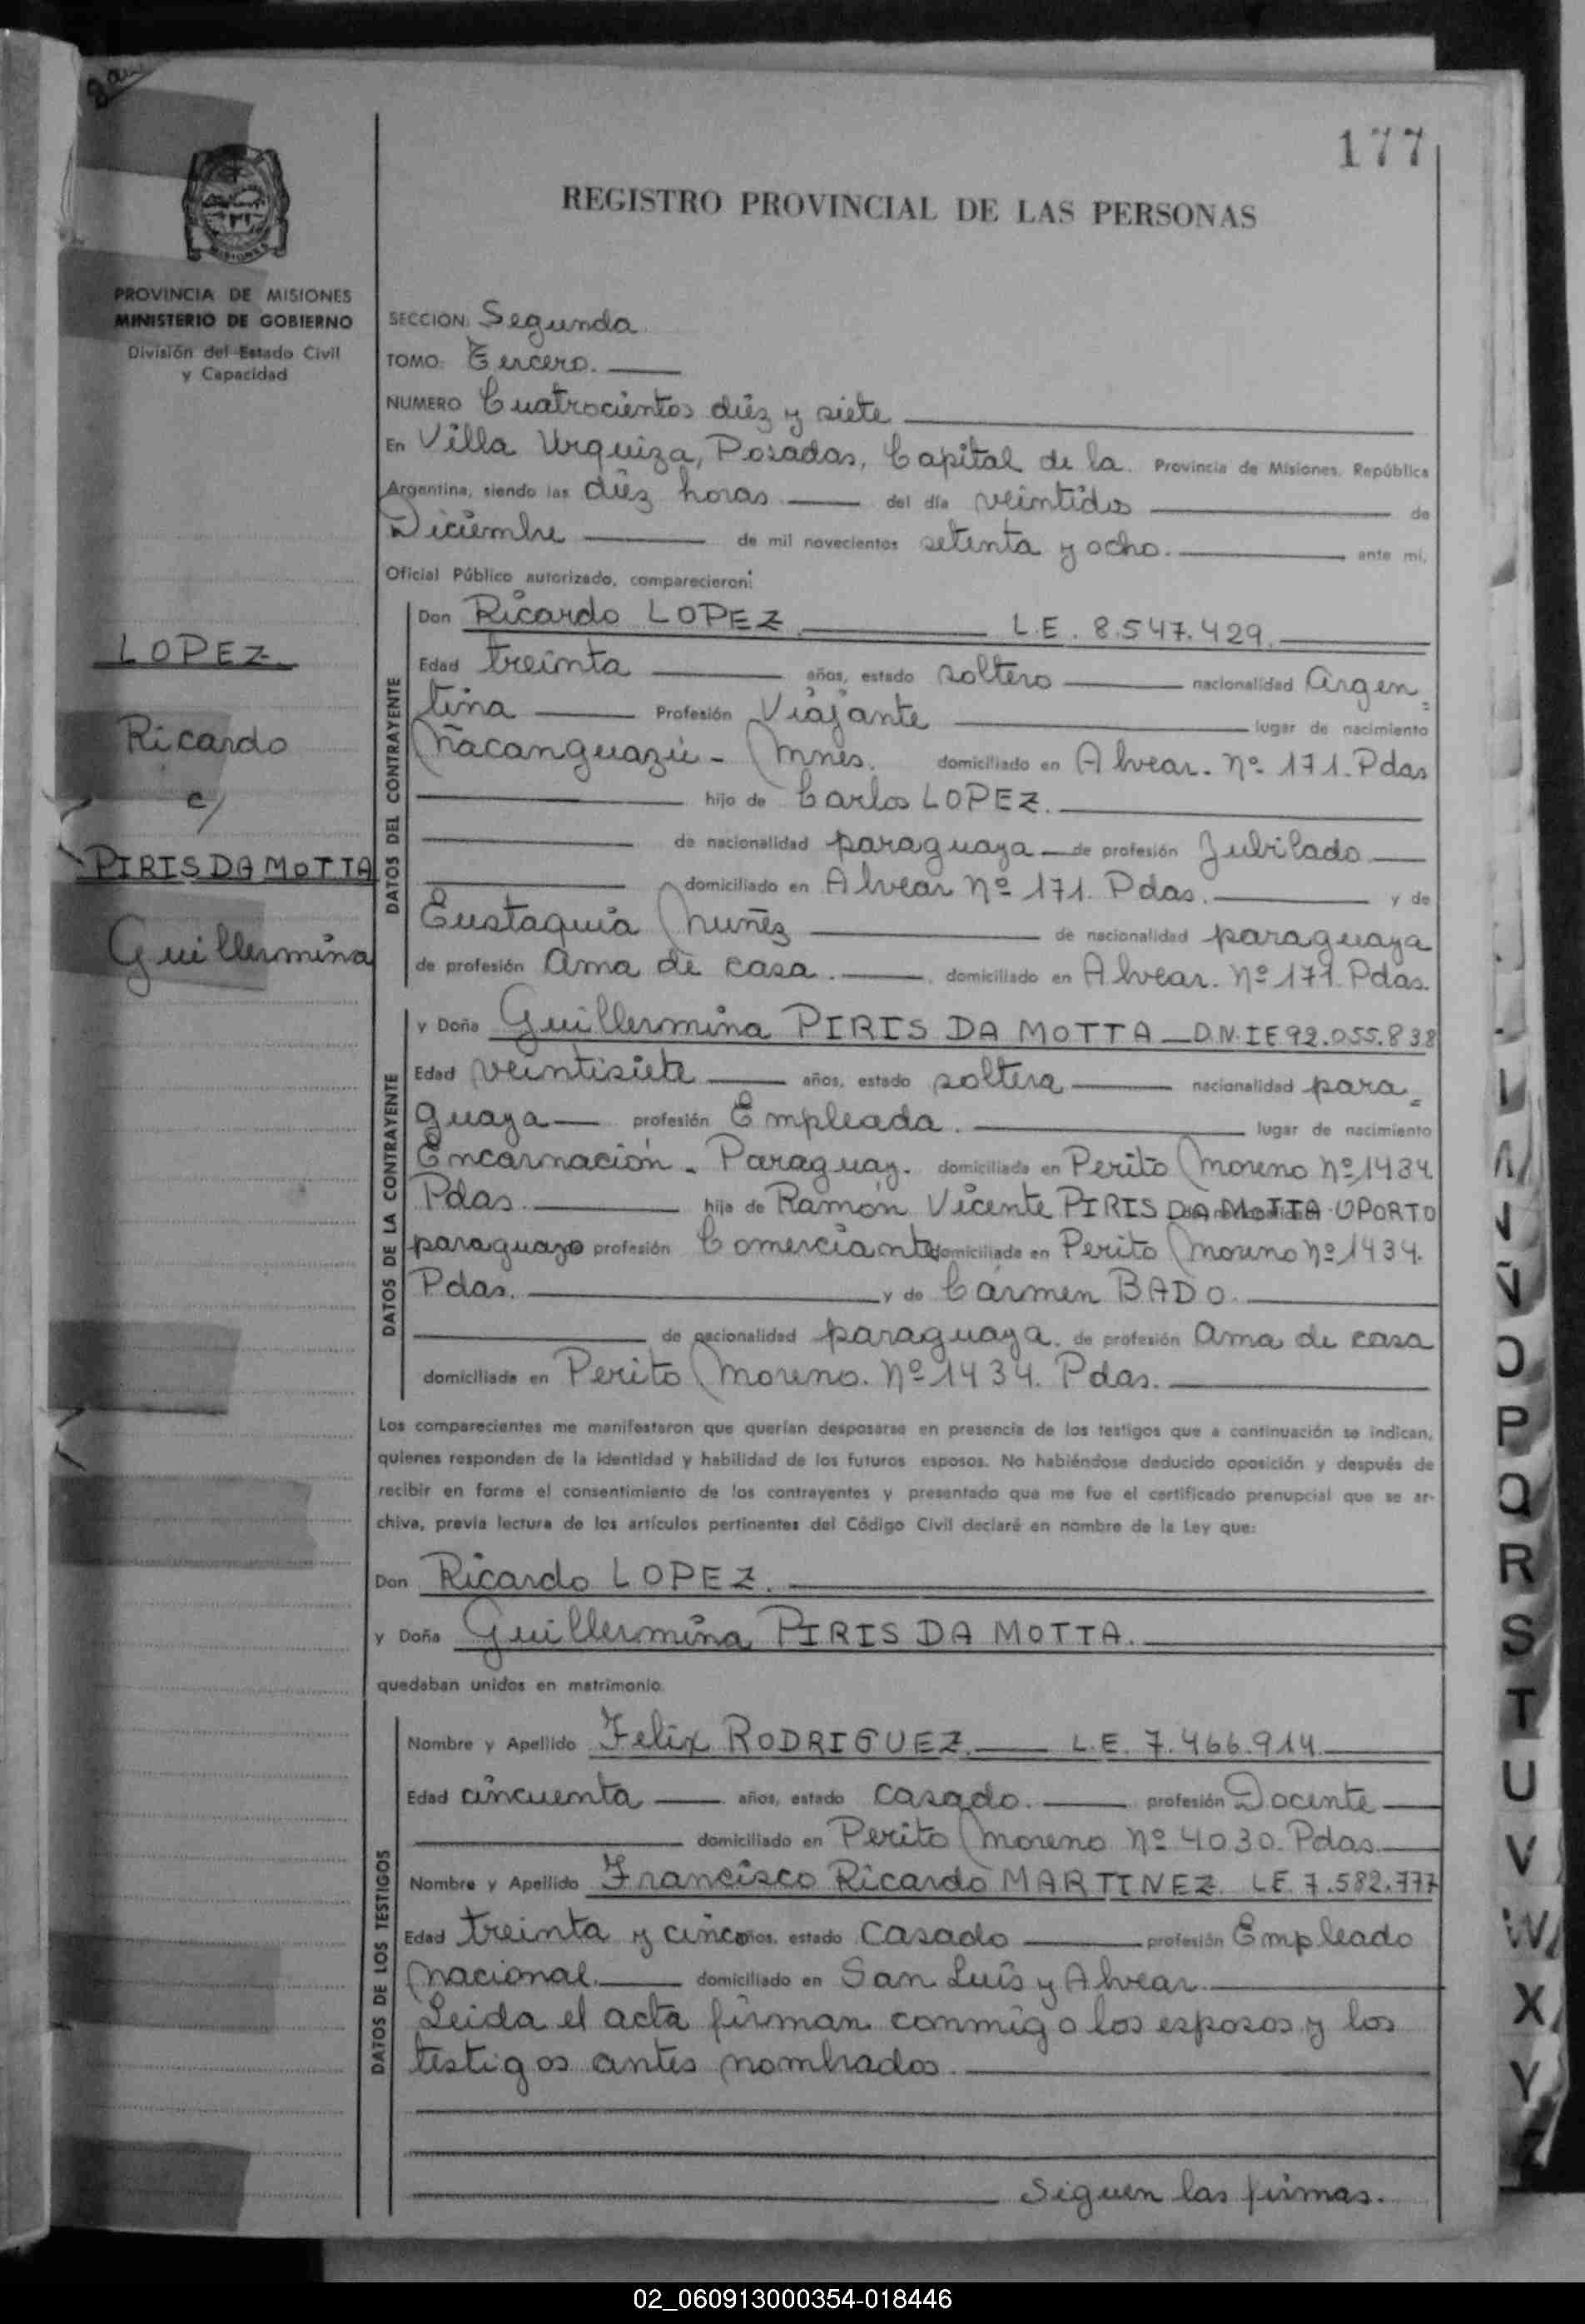 177
REGISTRO PROVINCIAL DE LAS PERSONAS
MISIONES
PROVINCIA DE MISIONES
MINISTERIO DE GOBIERNO
División del Estado Civil
y Capacidad
LOPEZ
Ricardo
c/
PIRIS DA MOTTA
Guillermina
SECCION: Segunda.
TOMO: Tercero.
NUMERO Cuatrocientos diéz y siete
En Villa Urquiza, Posadas, Capital de la. Provincia de Misiones, República
Argentina, siendo las diéz horas del día veintidos de
Diciembre de mil novecientos setenta y ocho. ante mi,
Oficial Público autorizado, comparecieron:
DATOS DEL CONTRAYENTE
Don Ricardo LOPEZ. L.E. 8.547.429.
Edad treinta años, estado soltero nacionalidad argen=
tina Profesión Viajante lugar de nacimiento
Ñacanguazú - Mnes. domiciliado en Alvear. Nº 171. Pdas
hijo de Carlos LOPEZ.
de nacionalidad paraguaya de profesión Jubilado
domiciliado en Alvear Nº 171. Pdas. y de
Eustaquia Nuñez de nacionalidad paraguaya
de profesión Ama de casa. domiciliado en Alvear. Nº 171. Pdas.
DATOS DE LA CONTRAYENTE
y Doña Guillermina PIRIS DA MOTTA D.N.I E 92.055.838
Edad veintisiete años, estado soltera nacionalidad para=
guaya profesión Empleada. lugar de nacimiento
Encarnación. Paraguay. domiciliada en Perito Moreno Nº 1434
Pdas. hija de Ramón Vicente PIRIS DA MOTTA OPORTO
paraguayo profesión Comerciante domiciliada en Perito Moreno Nº 1434.
Pdas. y de Cármen BADO.
de nacionalidad paraguaya. de profesión Ama de casa
domiciliada en Perito Moreno. Nº 1434. Pdas.
Los comparecientes me manifestaron que querían desposarse en presencia de los testigos que a continuación se indican,
quienes responden de la identidad y habilidad de los futuros esposos. No habiéndose deducido oposición y después de
recibir en forma el consentimiento de los contrayentes y presentado que me fue el certificado prenupcial que se ar-
chiva, previa lectura de los artículos pertinentes del Código Civil declaré en nombre de la Ley que:
Don Ricardo LOPEZ.
y Doña Guillermina PIRIS DA MOTTA.
quedaban unidos en matrimonio.
DATOS DE LOS TESTIGOS
Nombre y Apellido Felix RODRIGUEZ. L.E. 7.466.914
Edad cincuenta años, estado casado. profesión Docente
domiciliado en Perito Moreno Nº 4030. Pdas.
Nombre y Apellido Francisco Ricardo MARTINEZ. L.E. 7.582.777
Edad treinta y cinco años, estado casado profesión Empleado
nacional. domiciliado en San Luis y Alvear.
Leida el acta firman conmigo los esposos y los
testigos antes nombrados.
Siguen las firmas.
L
M
N
Ñ
O
P
Q
R
S
T
U
V
W
X
Y
Z
02_060913000354-018446